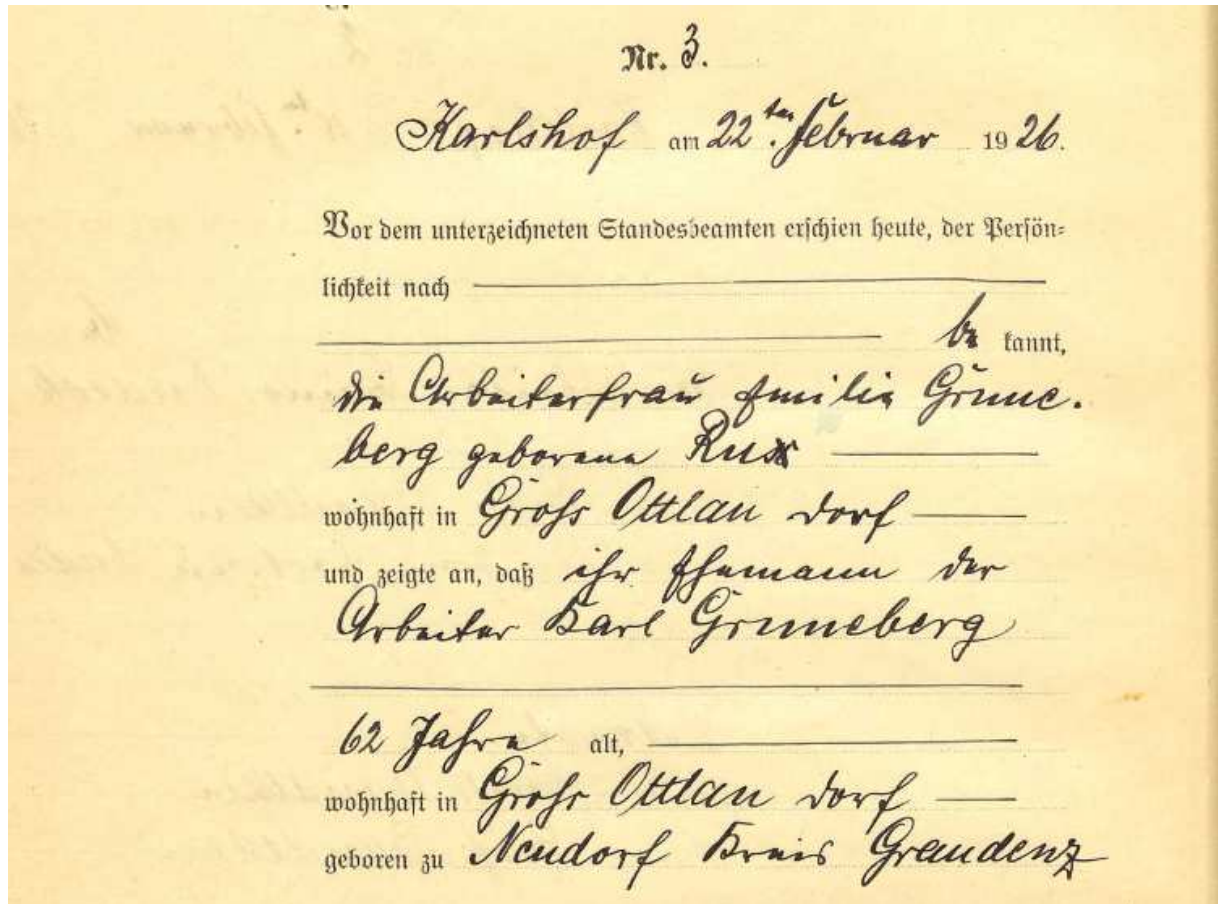 Nr. 3.
Karlshof am 22ten Februar 1926.
Vor dem unterzeichneten Standesbeamten erschien heute, der Persön=
lichkeit nach
be kannt,
die Arbeiterfrau Emilie Grune.
berg geborene Rux
wohnhaft in Groß Ottlau Dorf
und zeigte an, daß ihr Ehemann der
Arbeiter Karl Gruneberg
62 Jahre alt,
wohnhaft in Groß Ottlau Dorf
geboren zu Neudorf Kreis Graudenz